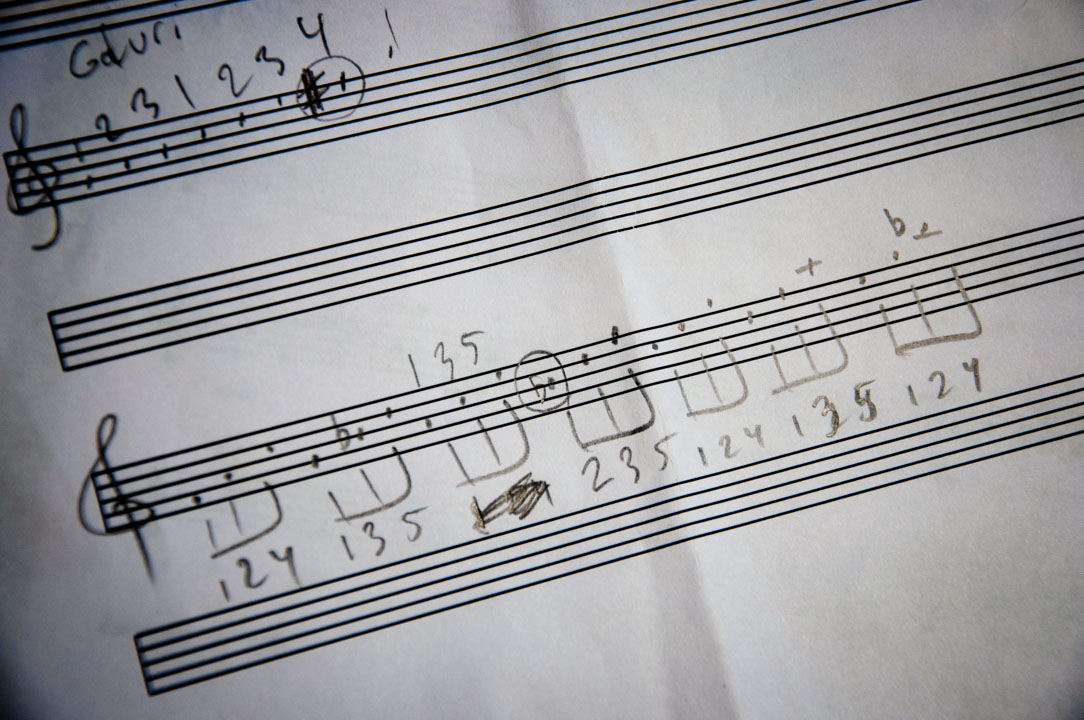 Gduri
2 3 1 2 3 4 1
b 1 3 5 b + b
1 2 4 1 3 5 2 3 5 1 2 4 1 3 5 1 2 4